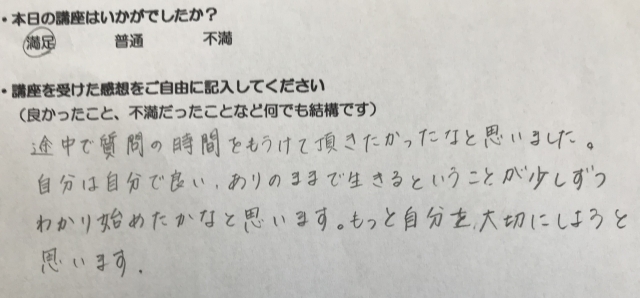 ・本日の講座はいかがでしたか？
満足 普通 不満
・講座を受けた感想をご自由に記入してください
（良かったこと、不満だったことなど何でも結構です）
途中で質問の時間をもうけて頂きたかったなと思いました。
自分は自分で良い、ありのままで生きるということが少しずつ
わかり始めたかなと思います。もっと自分を大切にしようと
思います。